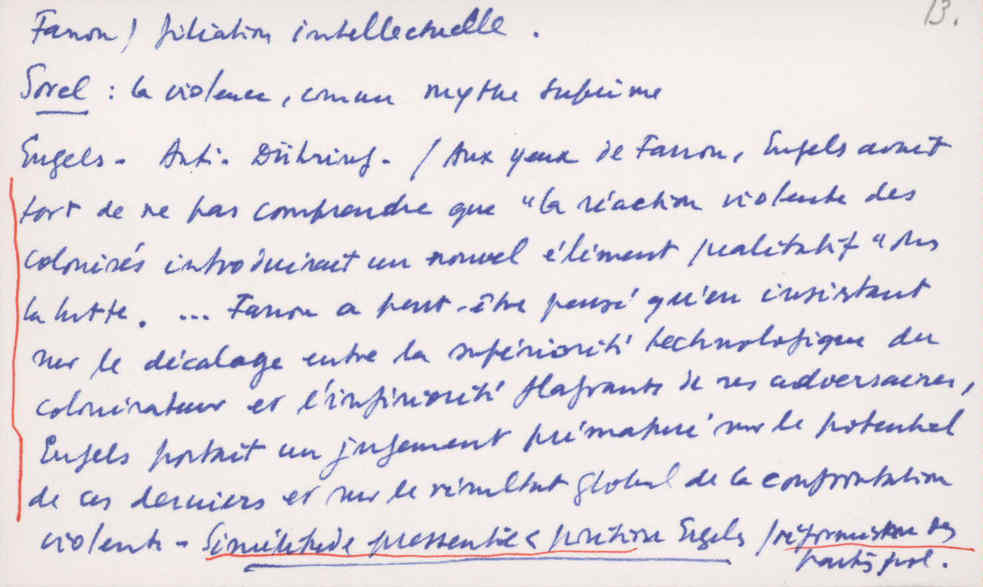 13.
Fanon) filiation intellectuelle.
Sorel : la violence, comme mythe suprême
Engels - Anti-Dühring - / Aux yeux de Fanon, Engels avait
tort de ne pas comprendre que "la réaction violente des
colonisés introduirait un nouvel élément qualitatif" ds
la lutte. ... Fanon a peut-être pensé qu'en insistant
sur le décalage entre la supériorité technologique du
colonisateur et l'infériorité flagrante de ses adversaires,
Engels portait un jugement prématuré sur le potentiel
de ces derniers et sur le résultat global de la confrontation
violente - Similitude pressentie < position Engels / réformisme des
partis pol.